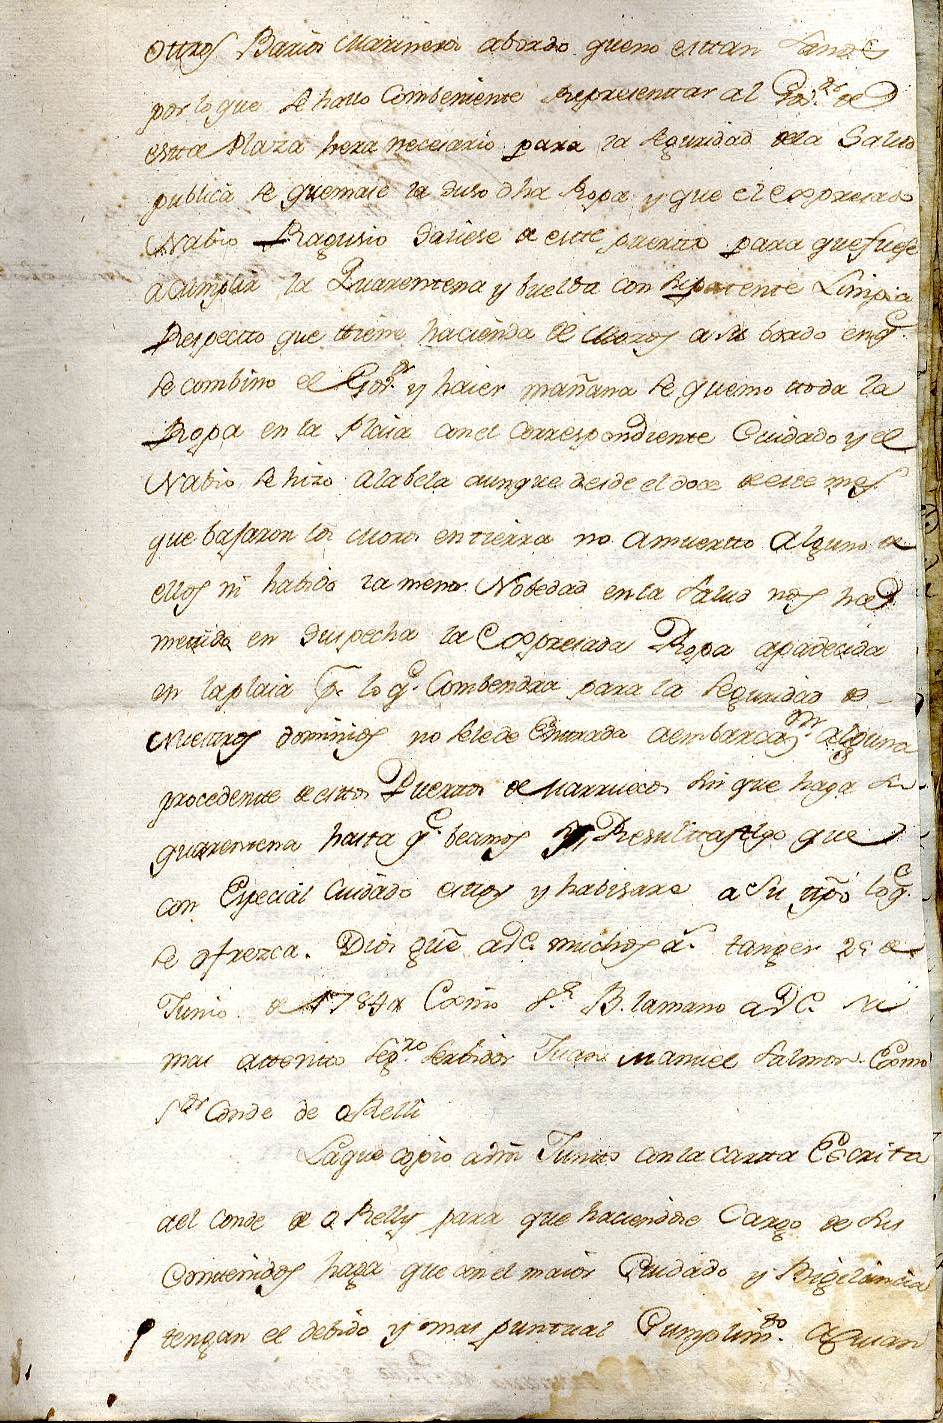 ottros Barios Marineros abordo queno esttan sanos
por lo que se hallo Combeniente Representtar al Gov.or de
estta Plaza hera necesario para la seguridad dela Salud
publica se quemase la dha Ropa y que el expresado
Nabio Ragusio saliese de este puertto para que fuese
acumplir la Quarentena y buelba con Patente Limpia
Respectto que ttiene hacienda de Moros a su bordo en q.e
se combino el Gov.or y haier mañana se quemo ttoda la
Ropa en la Plaia conel Correspondiente Cuidado y el
Nabio se hizo alabela aunque desde el doce de este mes
que bajaron los Moros en tierra no amuertto alguno de
ellos ni habido la menor Nobedad en la salud nos ha
metido en Sospecha la Expresada Ropa aparecida
en laplaia p.r lo q.e Combendra para la seguridad de
Nuestros dominios no sele de Entrada aembarcaz.on alguna
procedente de esttos Puerttos de Marruecos sin que haga su
quarentena hasta q.e beamos si Resultta Algo que
con Especial Cuidado esttoy y habisare a su ttpo lo q.e
se ofrezca. Dios gue a V.E. muchos a.s tanger 25 de
Junio de 1784 Exmo S.r B. lamano a V.E. su
mas attentto seg.ro Serbidor Juan Manuel Salmon. Exmo
S.or Conde de oRelli
Laque copio a Juntto con la cartta Escrita
del Conde de o Relly para que haciendose Cargo de sus
Contenidos haga que con el maior Cuidado y Bigilancia
tengan el debido y mas puntual Cumplim.to aquan